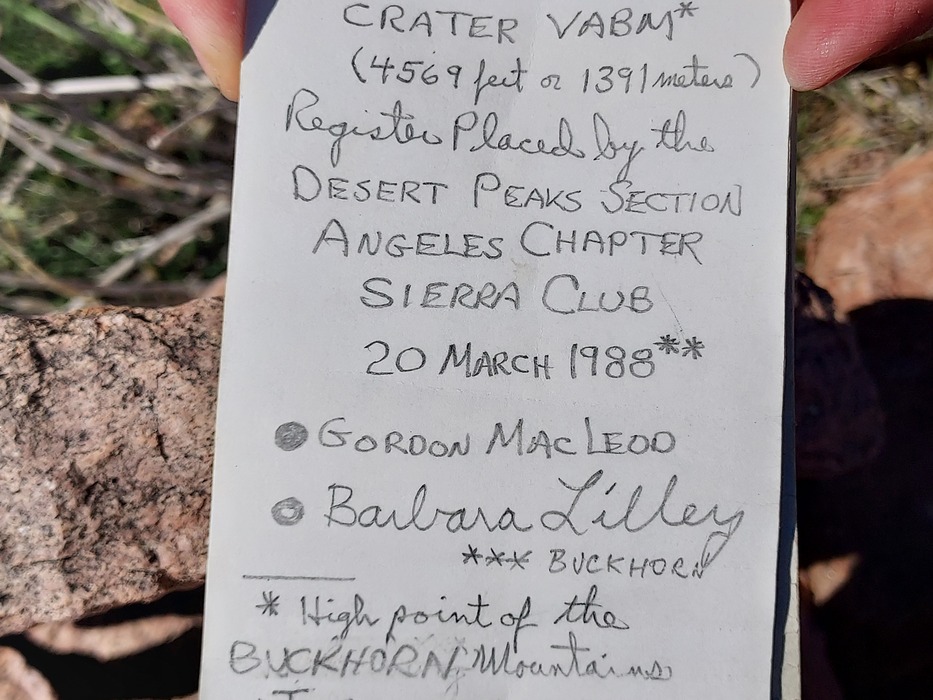 CRATER VABM*
(4569 feet or 1391 meters)
Register Placed by the
DESERT PEAKS SECTION
ANGELES CHAPTER
SIERRA CLUB
20 MARCH 1988**
GORDON MACLEOD
Barbara Lilley
*** BUCKHORN
* High point of the
BUCKHORN Mountains